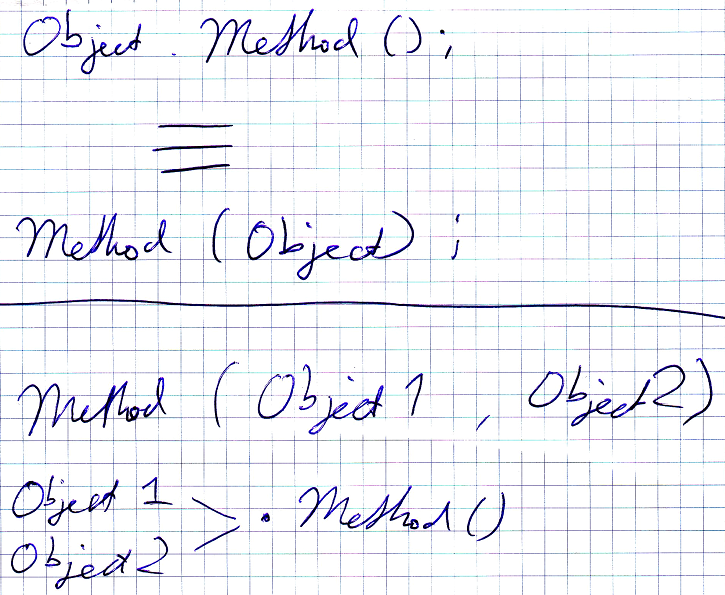 Object . Method ();
≡
Method (Object) ;
Method (Object 1 , Object2)
Object 1
Object 2 > . Method ()